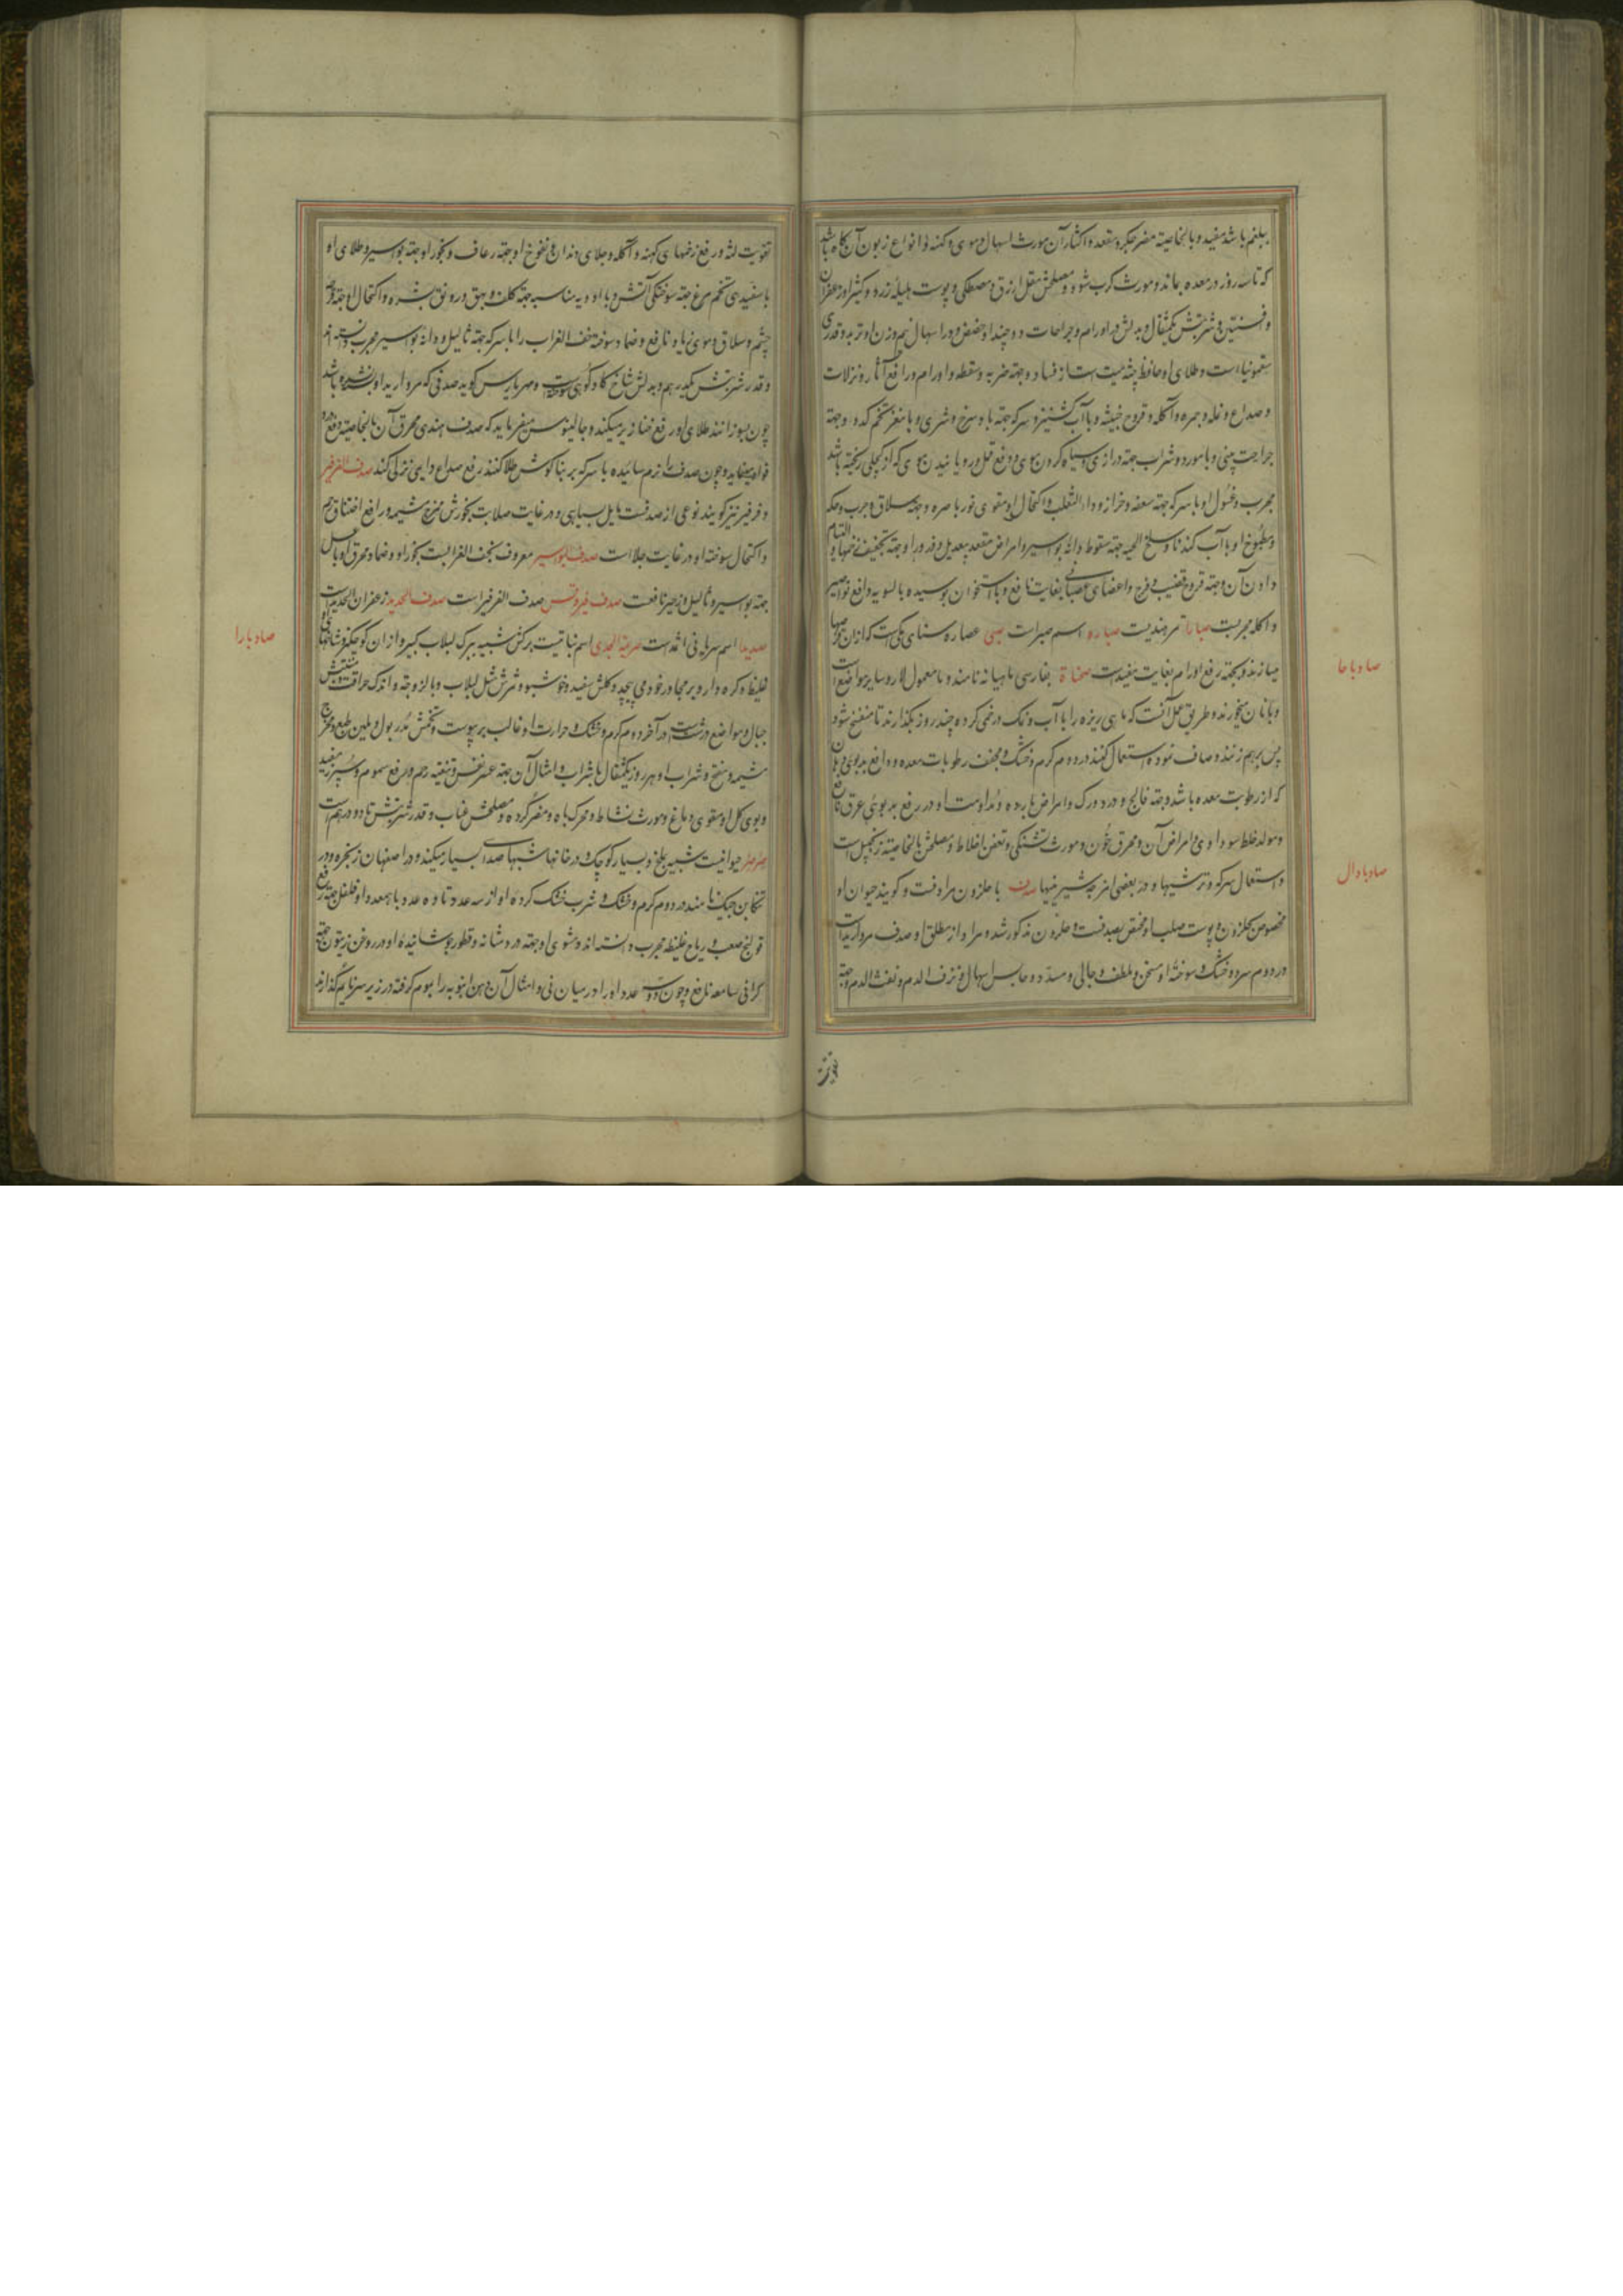 ببلغم باشد مفید و بالخاصیة مضر جگر و مقعده و اکثار آن مورث اسهال دموی و کهنه و انواع زبون آن گاه باشد
که تا سه روز در معده بماند و مورث کرب شود و مصلحش مقل ازرق و مصطکی و پوست هلیله زرد و کتیرا و زعفران
و افسنتین و شربتش یکمثقال و بدلش در اورام و جراحات دو چند او حضض و در اسهال نیم وزن او تربد و قدری
سقمونیا است و طلای او حافظ جثه میت است از فساد و جهة ضربه و سقطه و اورام و رافع آثار و نزلات
و صداع و نمله و جمره و آکله و قروح خبیثه و با آب گشنیز و سرکه جهة باد سرخ و شری و با مغز تخم کدو جهة
جراحت بینی و با مورد و شراب جهة درازی و سیاه کردن موی و دفع قمل و رویانیدن موی که از کچلی ریخته باشد
مجرب و غسول او با سرکه جهة سعفه و حزاز و داء الثعلب و اکتحال او مقوی نور باصره و جهة سلاق و جرب و حکه
و مطبوخ او با آب گندنا و سلخ الحیه جهة سقوط دانه بواسیر و امراض مقعد بیعدیل و ذرور او جهة تجفیف زخمها و التیام
دادن آن و جهة قروح قضیب و فرج و اعضای عصبانی بغایت نافع و با استخوان پوسیده بالسویه دافع نواصیر
و آکله مجربست صبارا تمر هندیست صباره اسم صبر است صبی عصاره سنای مکی است که از آن قرصها
میسازند و جهة رفع اورام بغایت مفید است صحناة بفارسی ماهیابه نامند و معمول لار و سایر مواضع است
و با نان میخورند و طریق عمل آنست که ماهی ریزه را با آب و نمک در خمی کرده چند روز بگذارند تا متفسخ شود
پس برهم زنند و صاف نموده استعمال کنند در دوم گرم و خشک و مجفف رطوبات معده و دافع بدبوی دهان
که از رطوبت معده باشد و جهة فالج و درد ورک و امراض بارده و مداومت او در رفع بدبوئی عرق نافع
و مولد خلط سوداوی و امراض آن و محرق خون و مورث تشنگی و تعفن اخلاط و مصلحش بالخاصیة زنجبیل است
و استعمال سرکه و ترشیها و در بعضی امزجه شیرینیها صدف با حلزون مرادفست و گویند حیوان او
مخصوص بحلزون و پوست صلب او مختص بصدفست و حلزون مذکور شد و مراد از مطلق او صدف مروارید است
در دوم سرد و خشک و سوخته او مسخن و ملطف و جالی و مسدد و حابس اسهال و نزف الدم و نفث الدم و جهة
تقویت
صاد با حا
صاد با دال
تقویت لثه و رفع زخمهای کهنه و آکله و جلای دندان و نفوخ او جهة رعاف و بخور او جهة بواسیر و طلای او
با سفیدی تخم مرغ جهة سوختگی آتش و با ادویه مناسبه جهة کلف و بهق و رونق بشره و اکتحال او جهة قرحه
چشم و سلاق و موی زیاد نافع و ضماد سوخته خف الغراب را با سرکه جهة ثالیل و دانه بواسیر مجرب دانسته‌اند
و قدر شربتش یکدرهم و بدلش شاخ گاو کوهی سوخته و مهر یاریس گوید صدفی که مروارید او نشده باشد
چون بسوزانند طلای او رفع خنازیر میکند و جالینوس میفرماید که صدف هندی محرق آن بالخاصیة دفع درد
فواد مینماید و چون صدف را نرم سائیده با سرکه بر بناگوش طلا کنند رفع صداع دایمی نزلی کند صدف الفرفیر
و فرفیر نیز گویند نوعی از صدفست مایل بسیاهی و در غایت صلابت بخورش مخرج مشیمه و رافع اختناق رحم
و اکتحال سوخته او در غایت جلا است صدف البواسیر معروف بخف الغرابست بخور او و ضماد محرق او با عسل
جهة بواسیر و ثالیل و زحیر نافعست صدف فیروقس صدف الفرفیر است صدف الحدید زعفران الحدید است
صدیدا اسم سریانی اثمد است صریمة الجدی اسم نباتیست برگش شبیه ببرگ لبلاب کبیر و از آن کوچکتر و شاخهای او
غلیظ و گره دار و بر مجاور خود می پیچد و گلش سفید و خوشبو و ثمرش مثل لبلاب و با لزوجة و اندک حرافت و منبتش
جبال و مواضع درشت است در آخر دوم گرم و خشک و حرارت او غالب بر یبوست و تخمش مدر بول و ملین طبع و مخرج
مشیمه و منضج و شراب او هر روز یکمثقال با شراب و امثال آن جهة عسر نفس و تنقیه رحم و رفع سموم و سپرز مفید
و بوی گل او مقوی دماغ و مورث نشاط و محرک باه و مضر گرده و مصلحش عناب و قدر شربتش تا دو درهم است
صرصر حیوانیست شبیه بملخ و بسیار کوچک و در خانها شبها صدای بسیار میکند و در اصفهان زنجره و در
تنکابن جیک نامند در دوم گرم و خشک و شرب خشک کرده او از سه عدد تا ده عدد با همعدد او فلفل جهة رفع
قولنج صعب و ریاح غلیظه مجرب دانسته‌اند و مشوی او جهة درد مثانه و قطور جوشانیده او در روغن زیتون جهة
گرانی سامعه نافع و چون دو سه عدد او را در میان نی و امثال آن و دهن انبوبه را بموم گرفته در زیر سر نایم گذارند
صاد با را